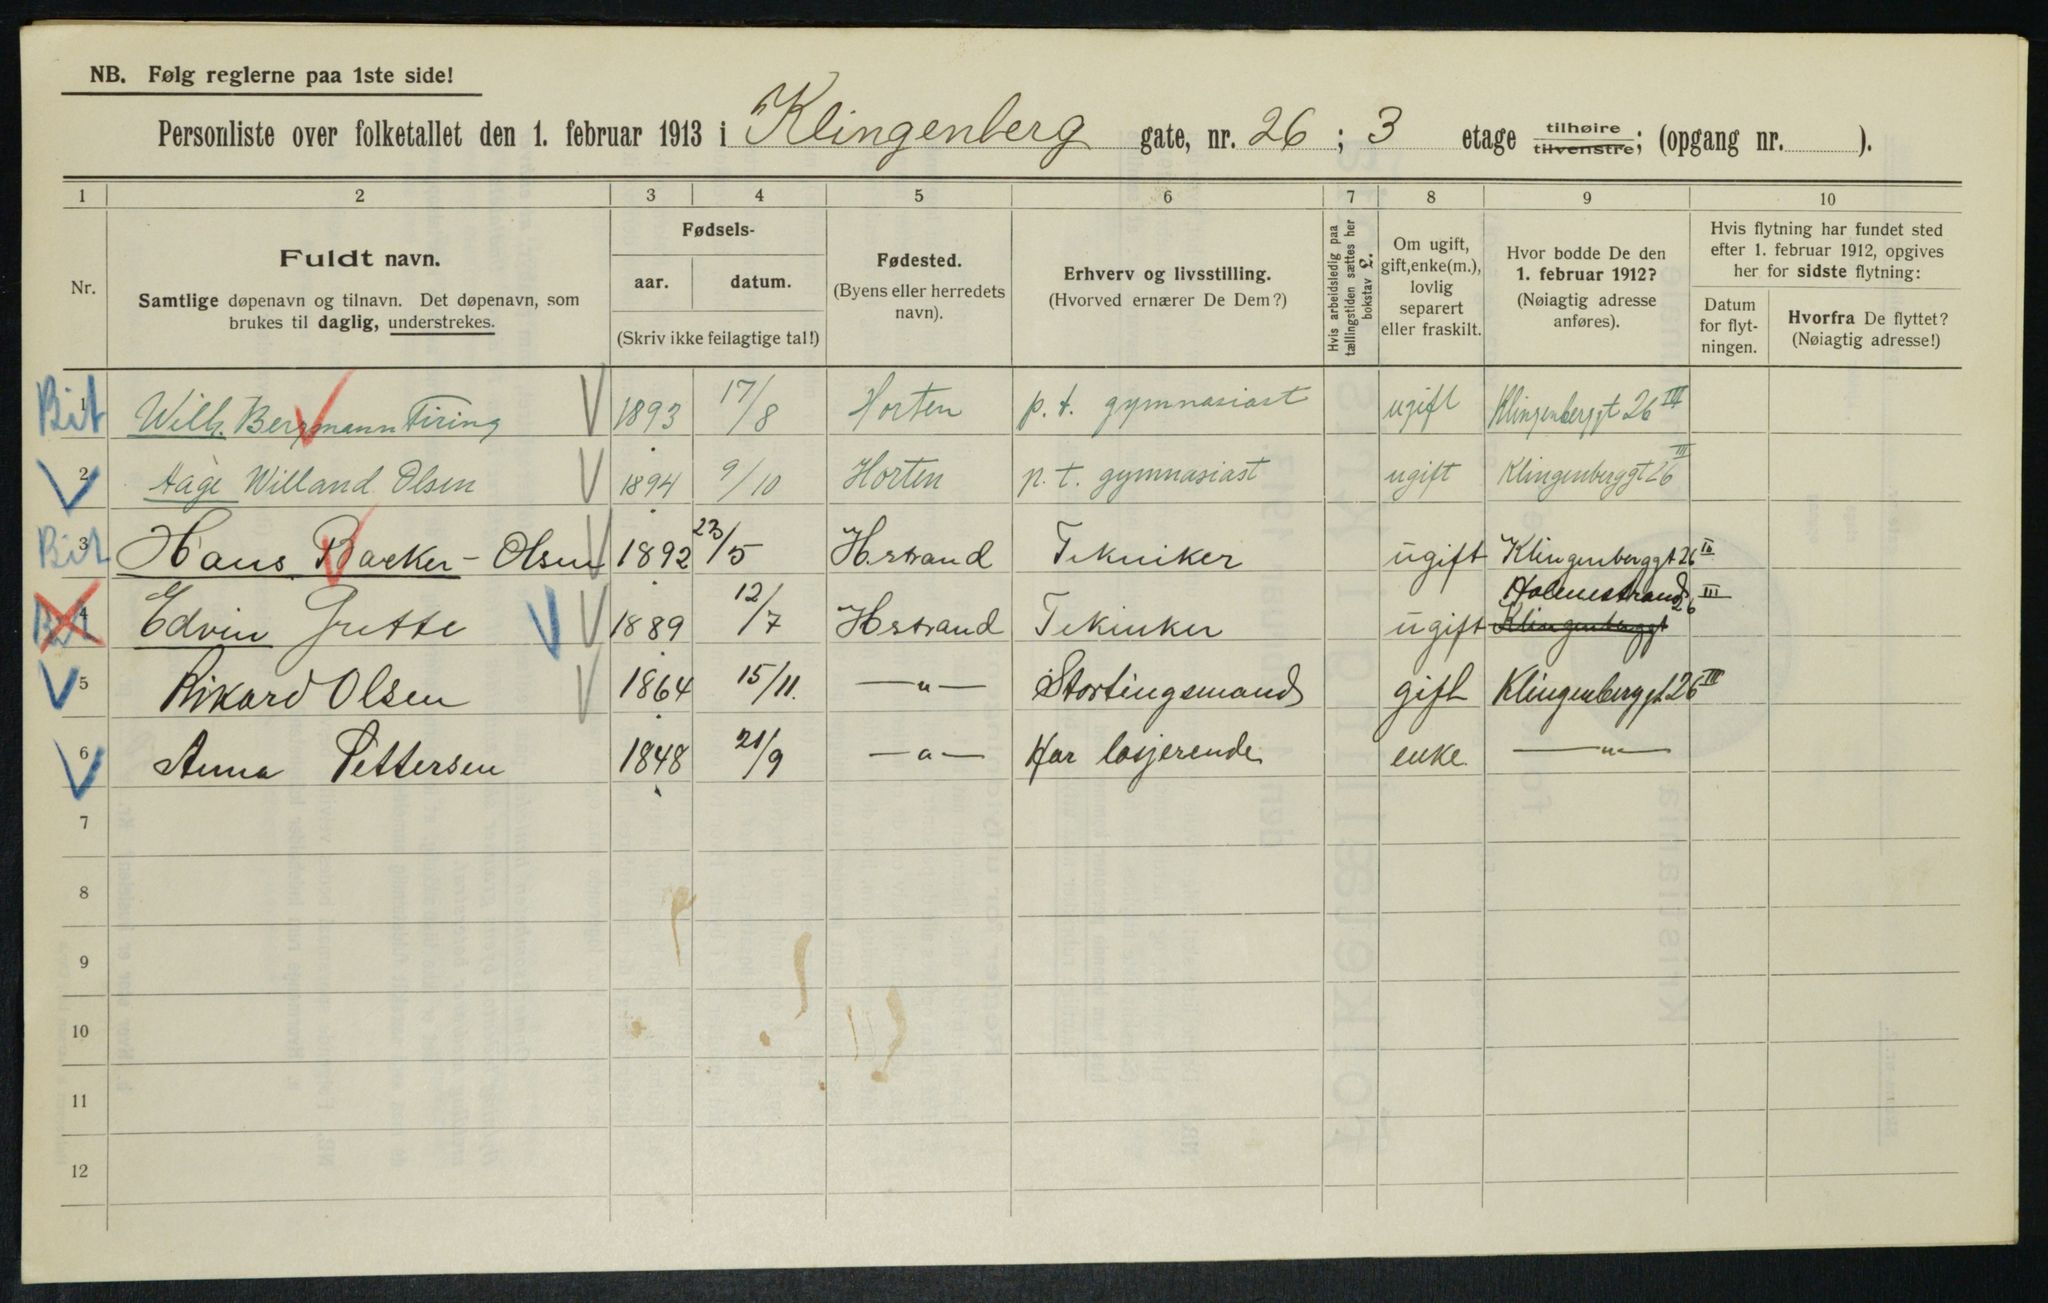 NB. Følg reglerne paa 1ste side!
Personliste over folketallet den 1. februar 1913 i Klingenberg gate, nr. 26 ; 3 etage tilhøire tilvenstre; (opgang nr. ).
1 2 3 4 5 6 7 8 9 10
Nr.
Fuldt navn.
Samtlige døpenavn og tilnavn. Det døpenavn, som
brukes til daglig, understrekes.
Fødsels-
aar. datum.
(Skriv ikke feilagtige tal!)
Fødested.
(Byens eller herredets
navn).
Erhverv og livsstilling.
(Hvorved ernærer De Dem?)
Hvis arbeidsledig paa
tællingstiden sættes her
bokstav L.
Om ugift,
gift, enke(m.),
lovlig
separert
eller fraskilt.
Hvor bodde De den
1. februar 1912?
(Nøiagtig adresse
anføres).
Hvis flytning har fundet sted
efter 1. februar 1912, opgives
her for sidste flytning:
Datum
for flyt-
ningen.
Hvorfra De flyttet?
(Nøiagtig adresse!)
Bit 1 Wilh. Bergmann Firing 1893 17/8 Horten p. t. gymnasiast ugift Klingenberggt 26 III
2 Aage Willand Olsen 1894 9/10 Horten p. t. gymnasiast ugift Klingenberggt 26 III
Bit 3 Hans Backer-Olsen 1892 23/5 Hstrand Tekniker ugift Klingenberggt 26 III
Holmestrand
Bit 4 Edvin Grette 1889 12/7 Hstrand Tekniker ugift Klingenberggt 26 III
5 Rikard Olsen 1864 15/11. —"— Stortingsmand gift Klingenberggt 26 III
6 Anna Pettersen 1848 21/9 —"— Har losjerende enke. —"—
7
8
9
10
11
12